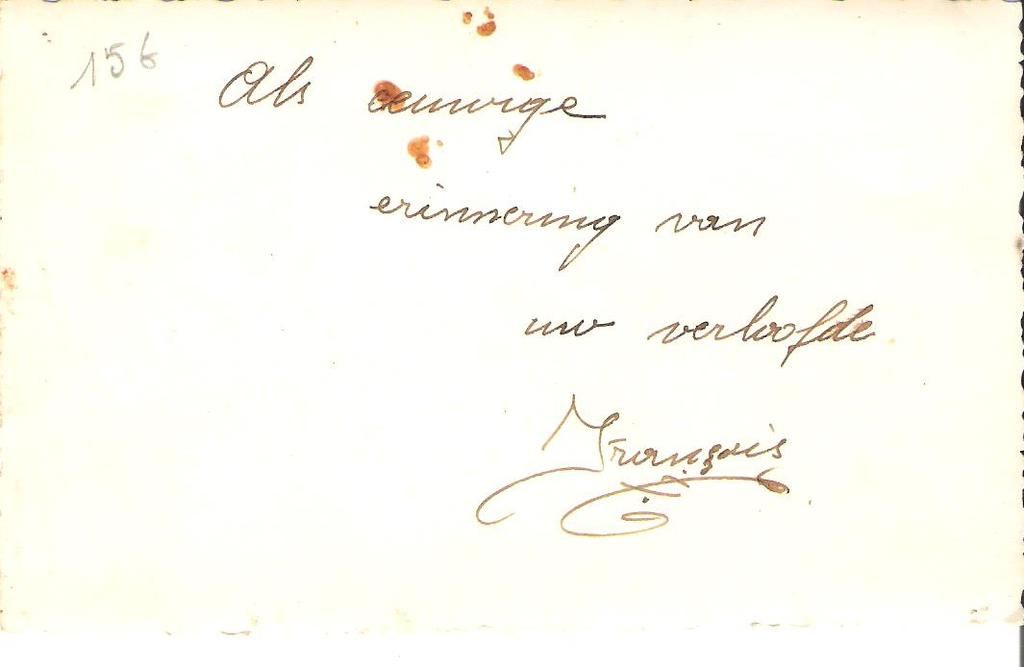 156
Als eeuwige
erinnering van
uw verloofde
François